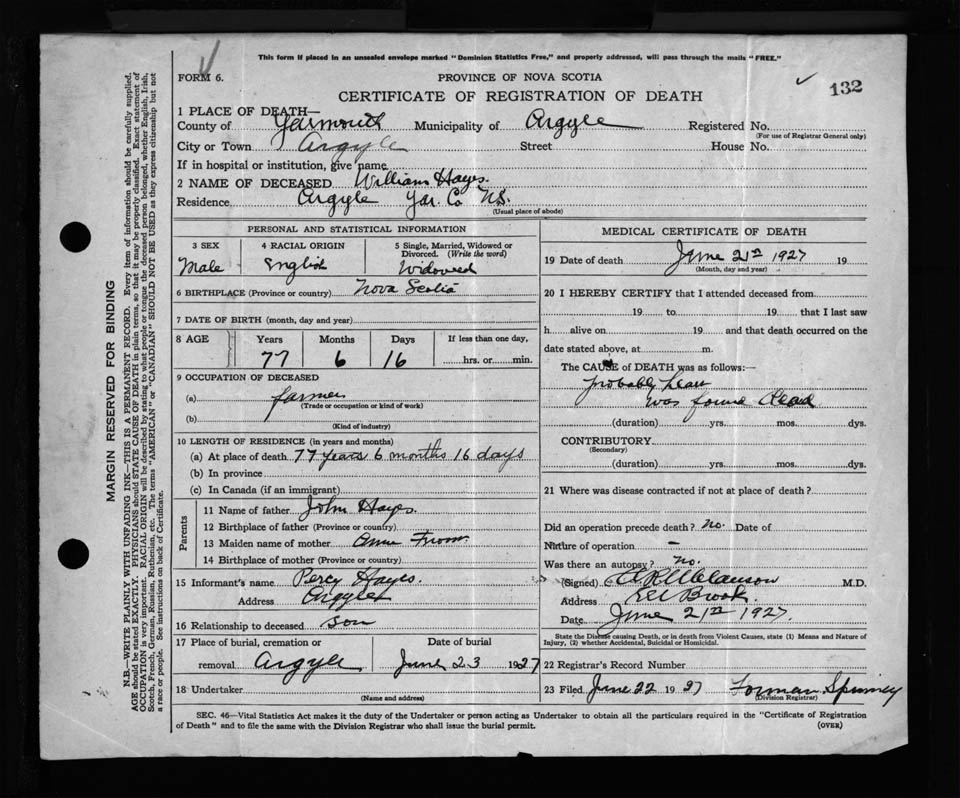 This form if placed in an unsealed envelope marked "Dominion Statistics Free," and properly addressed, will pass through the mails "FREE."
FORM 6.
PROVINCE OF NOVA SCOTIA
132
CERTIFICATE OF REGISTRATION OF DEATH
1 PLACE OF DEATH—
County of Yarmouth Municipality of Argyle Registered No.
(For use of Registrar General only)
City or Town Argyle Street House No.
If in hospital or institution, give name
2 NAME OF DECEASED William Hayes.
Residence Argyle Yar. Co N.S.
(Usual place of abode)
PERSONAL AND STATISTICAL INFORMATION
3 SEX 4 RACIAL ORIGIN 5 Single, Married, Widowed or Divorced. (Write the word)
Male English Widowed
6 BIRTHPLACE (Province or country) Nova Scotia
7 DATE OF BIRTH (month, day and year)
8 AGE Years Months Days If less than one day,
77 6 16 hrs. or min.
9 OCCUPATION OF DECEASED
(a) farmer
(Trade or occupation or kind of work)
(b)
(Kind of industry)
10 LENGTH OF RESIDENCE (in years and months)
(a) At place of death 77 years 6 months 16 days
(b) In province
(c) In Canada (if an immigrant)
Parents
11 Name of father John Hayes.
12 Birthplace of father (Province or country)
13 Maiden name of mother Anne Frost
14 Birthplace of mother (Province or country)
15 Informant's name Percy Hayes.
Address Argyle
16 Relationship to deceased son
17 Place of burial, cremation or removal Argyle Date of burial June 23 1927
18 Undertaker
(Name and address)
MEDICAL CERTIFICATE OF DEATH
19 Date of death June 21st 1927 19
(Month, day and year)
20 I HEREBY CERTIFY that I attended deceased from
19 to 19 that I last saw
h alive on 19 and that death occurred on
date stated above, at m.
The CAUSE of DEATH was as follows:—
probably heart
was found dead
(duration) yrs. mos. dys.
CONTRIBUTORY
(Secondary)
(duration) yrs. mos. dys.
21 Where was disease contracted if not at place of death?
Did an operation precede death? no. Date of
Nature of operation —
Was there an autopsy? no.
(Signed) M.D.
Address Brook
Date June 21st 1927
State the Disease causing Death, or in death from Violent Causes, state (1) Means and Nature of
Injury, (2) whether Accidental, Suicidal or Homicidal.
22 Registrar's Record Number
23 Filed June 22 1927 Forman Spinney
(Division Registrar)
SEC. 46—Vital Statistics Act makes it the duty of the Undertaker or person acting as Undertaker to obtain all the particulars required in the "Certificate of Registration
of Death" and to file the same with the Division Registrar who shall issue the burial permit.
(OVER)
MARGIN RESERVED FOR BINDING
N.B.—WRITE PLAINLY WITH UNFADING INK—THIS IS A PERMANENT RECORD. Every item of information should be carefully supplied.
AGE should be stated EXACTLY. PHYSICIANS should STATE CAUSE OF DEATH in plain terms, so that it may be properly classified. Exact statement of
OCCUPATION is very important. RACIAL ORIGIN will be described by stating to what people or tongue the deceased person belonged, whether English, Irish,
Scotch, French, German, Russian, Ruthenian, etc. The terms "AMERICAN" or "CANADIAN" SHOULD NOT BE USED as they express citizenship but not
a race or people. See instructions on back of Certificate.